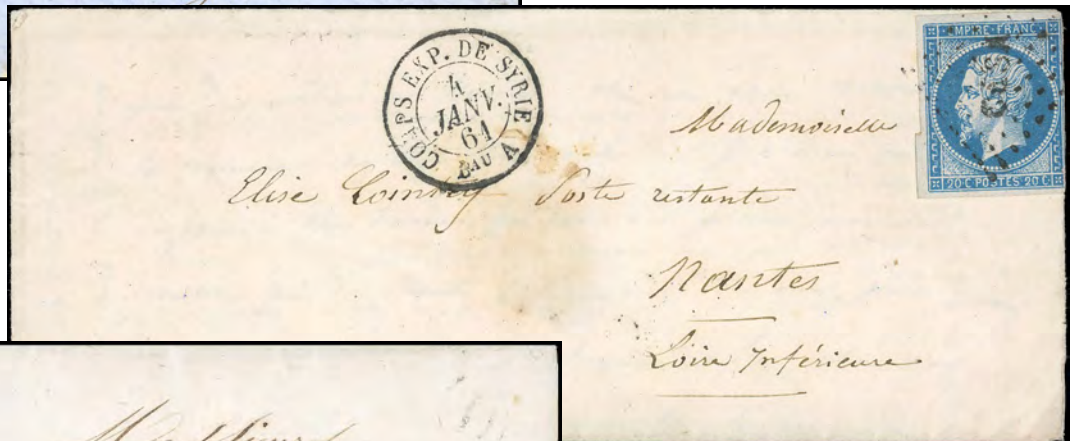 CORPS EXP. DE SYRIE
4
JANV.
61
Bau A
EMPIRE FRANC
20 C POSTES 20 C
Mademoiselle
Elise Poste restante
Nantes
Loire Inférieure
Monsieur